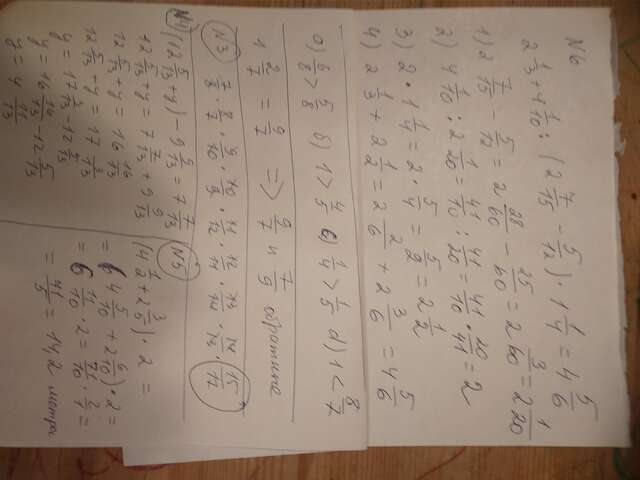 N6
2 1/3 + 4 1/10 : (2 7/15 - 5/12) · 1 1/4 = 4 5/6
1) 2 7/15 - 5/12 = 2 28/60 - 25/60 = 2 3/60 = 2 1/20
2) 4 1/10 : 2 1/20 = 41/10 : 41/20 = 41/10 · 20/41 = 2
3) 2 · 1 1/4 = 2 · 5/4 = 5/2 = 2 1/2
4) 2 1/3 + 2 1/2 = 2 2/6 + 2 3/6 = 4 5/6
а) 6/8 > 5/8 б) 1 > 4/5 в) 1/4 > 1/5 д) 1 < 8/7
1 2/7 = 9/7 => 9/7 и 7/9 обратные
N3
7/8 · 8/7 · 9/10 · 10/9 · 11/12 · 12/11 · 13/14 · 14/13 · 15/17
N4
(12 5/13 + y) - 9 9/13 = 7 7/13
12 5/13 + y = 7 7/13 + 9 9/13
12 5/13 + y = 16 16/13
12 5/13 + y = 17 3/13
y = 17 3/13 - 12 5/13
y = 16 16/13 - 12 5/13
y = 4 11/13
N5
(4 1/2 + 2 3/5) · 2 =
= (4 5/10 + 2 6/10) · 2 =
= 6 11/10 · 2 = 71/10 · 2/1 =
= 71/5 = 14,2 метра